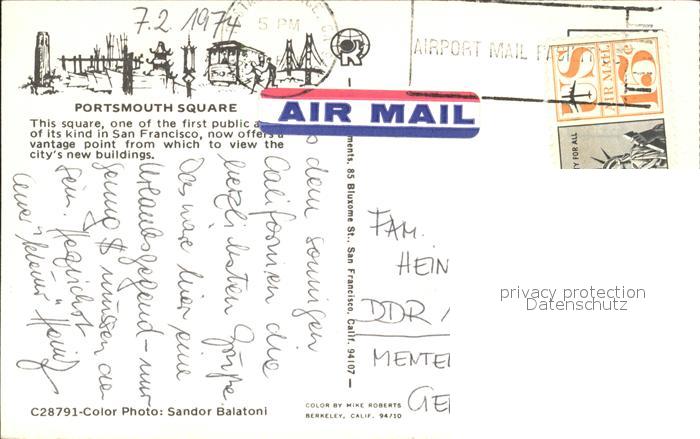 7.2.1974
5 PM
AIRPORT MAIL
US
AIR MAIL
15c
TY FOR ALL
PORTSMOUTH SQUARE
AIR MAIL
This square, one of the first public a
of its kind in San Francisco, now offers a
vantage point from which to view the
city's new buildings.
dem sonnigen
Californien die
herzlichsten Grüße.
Das wäre hier eine
Urlaubsgegend - nur
genug $ müssen da
sein. Herzlichst
Heinz
ments, 85 Bluxome St., San Francisco, Calif. 94107 —
FAM.
HEIN
DDR
MENTE
GE
privacy protection
Datenschutz
C28791-Color Photo: Sandor Balatoni
COLOR BY MIKE ROBERTS
BERKELEY, CALIF. 94710